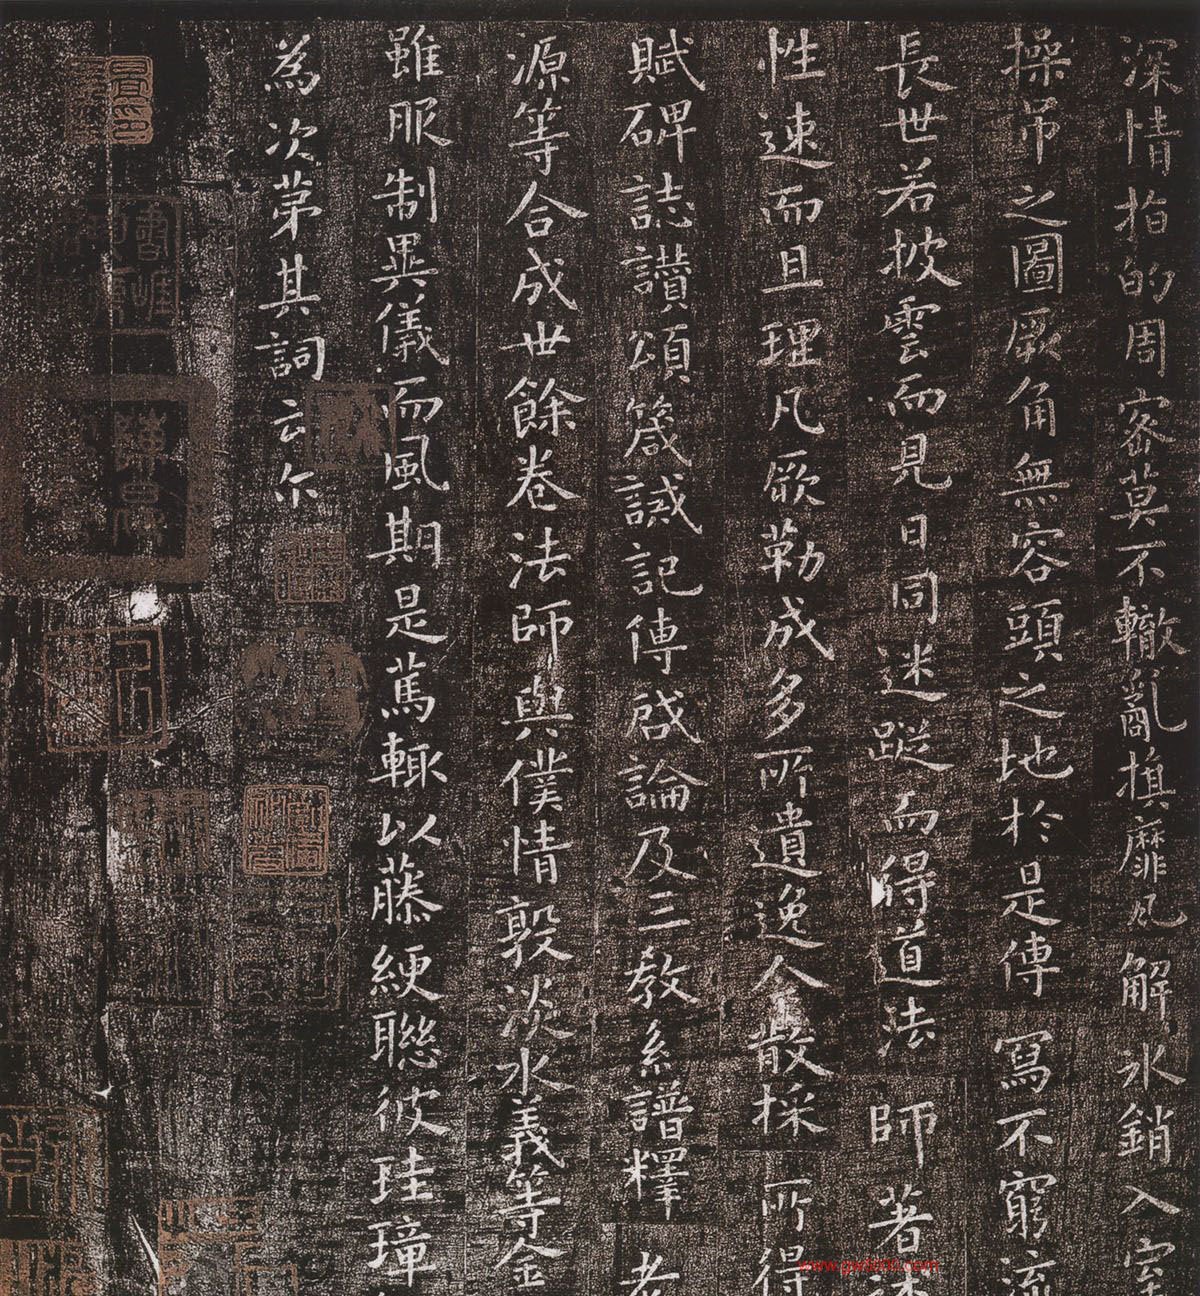 深情指的周密莫不轍亂旗靡瓦解冰銷入室
操吊之圖厥角無容頭之地於是傳寫不窮流
長世若披雲而見日同迷蹤而得道法師著述
性速而且理凡厥勒成多所遺逸今散採所得
賦碑誌讚頌箴誡記傳啟論及三教系譜釋老
源等合成世餘卷法師與僕情敦淡水義等金
雖服制異儀而風期是篤輒以藤綆聯彼珪璋
為次第其詞云尒
www.gw5000.com